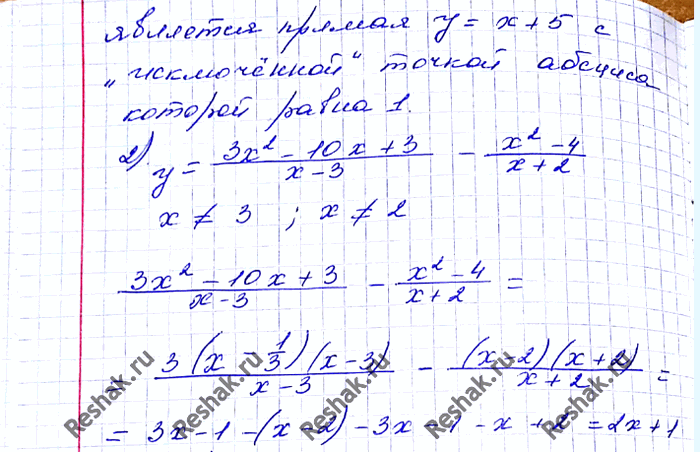 является прямая y = x + 5 с
„исключённой“ точкой абсциса
которой равна 1.
2) y = (3x² - 10x + 3)/(x - 3) - (x² - 4)/(x + 2)
x ≠ 3 ; x ≠ 2
(3x² - 10x + 3)/(x - 3) - (x² - 4)/(x + 2) =
= 3(x - 1/3)(x - 3)/(x - 3) - (x - 2)(x + 2)/(x + 2) =
= 3x - 1 - (x - 2) - 3x - 1 - x + 2 = 2x + 1
Reshak.ru Reshak.ru Reshak.ru Reshak.ru Reshak.ru Reshak.ru